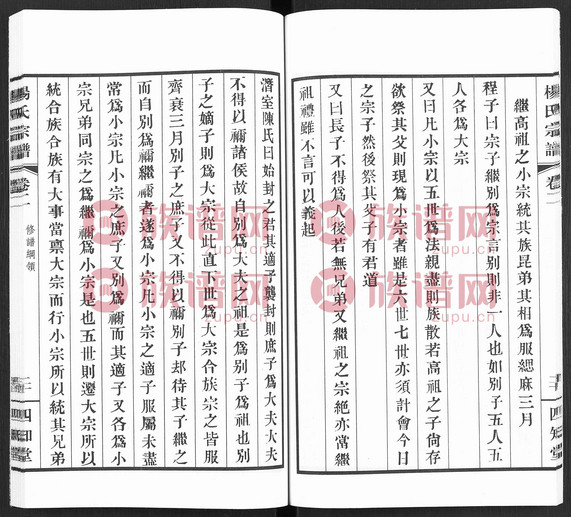 繼高祖之小宗統其族昆弟其相爲服緦麻三月
程子曰宗子繼別爲宗言別則非一人也如別子五人五
人各爲大宗
又曰凡小宗以五世爲法親盡則族散若高祖之子尙存
欲祭其父則現爲小宗者雖是六世七世亦須計會今日
之宗子然後祭其父子有君道
又曰長子不得爲人後若無兄弟又繼祖之宗絶亦當繼
祖禮雖不言可以義起
楊氏宗譜
卷二
四知堂
濳室陳氏曰始封之君其適子襲封則庶子爲大夫大夫
不得以禰諸侯故自別爲大夫之祖是爲別子爲祖也別
子之嫡子則爲大宗從此直下世爲大宗合族宗之皆服
齊衰三月別子之庶子又不得以禰別子却待其子繼之
而自別爲禰繼禰者遂爲小宗凡小宗之適子服屬未盡
常爲小宗凡小宗之庶子又別爲禰而其適子又各爲小
宗兄弟同宗之爲繼禰爲小宗是也五世則遷大宗所以
統合族合族有大事當禀大宗而行小宗所以統其兄弟
楊氏宗譜
卷二
修譜綱領
三
四知堂
族谱网
yupu.cn